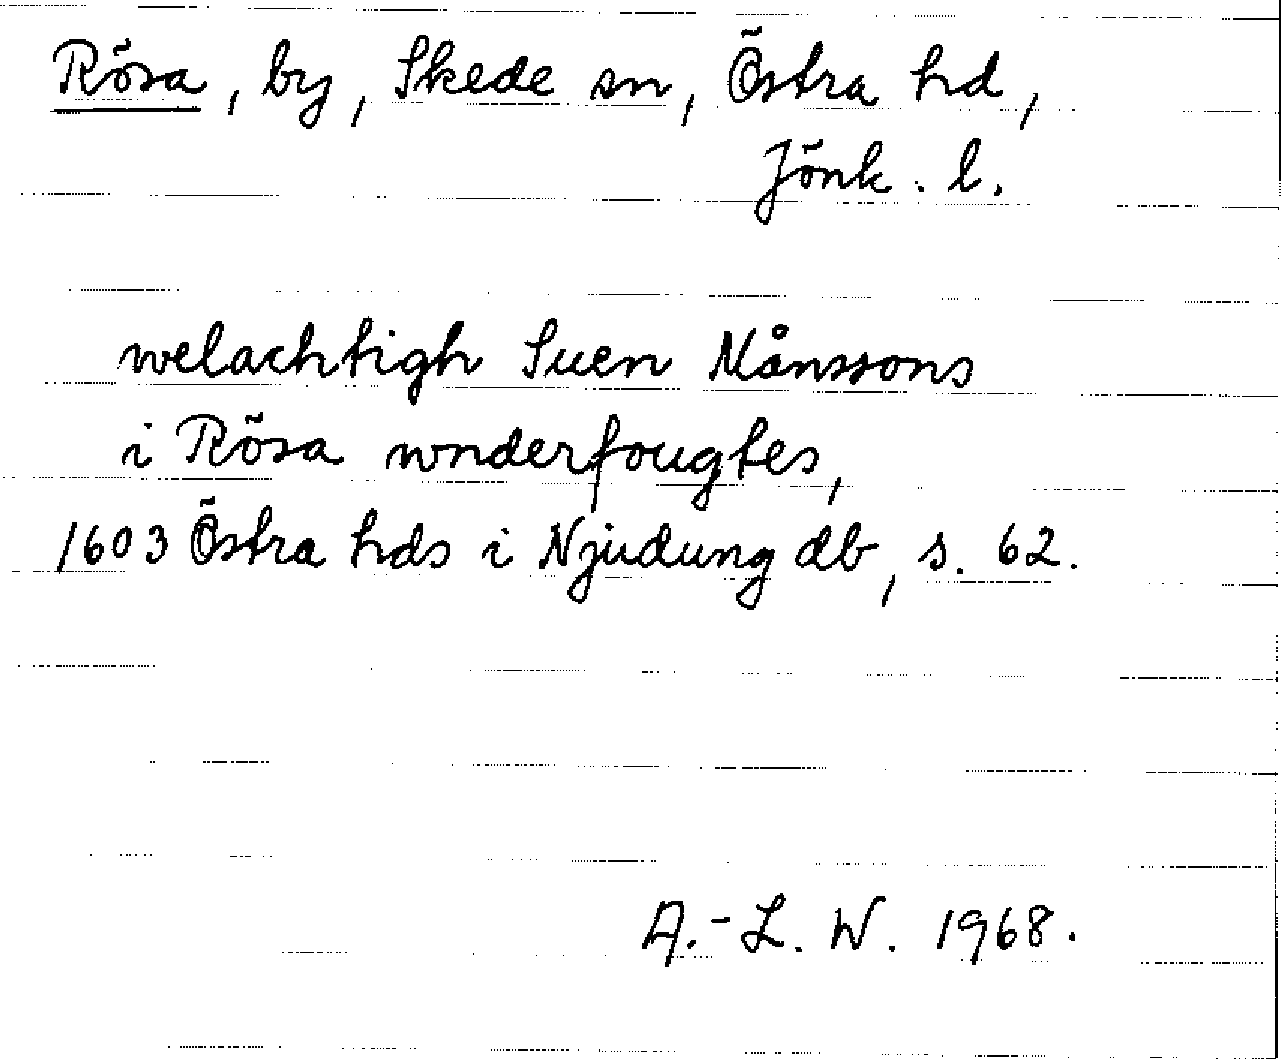 Rösa, by, Skede sn, Östra hd,
Jönk. l.
welachtigh Suen Månssons
i Rösa wnderfougtes,
1603 Östra hds i Njudung db, s. 62.
A.-L. W. 1968.